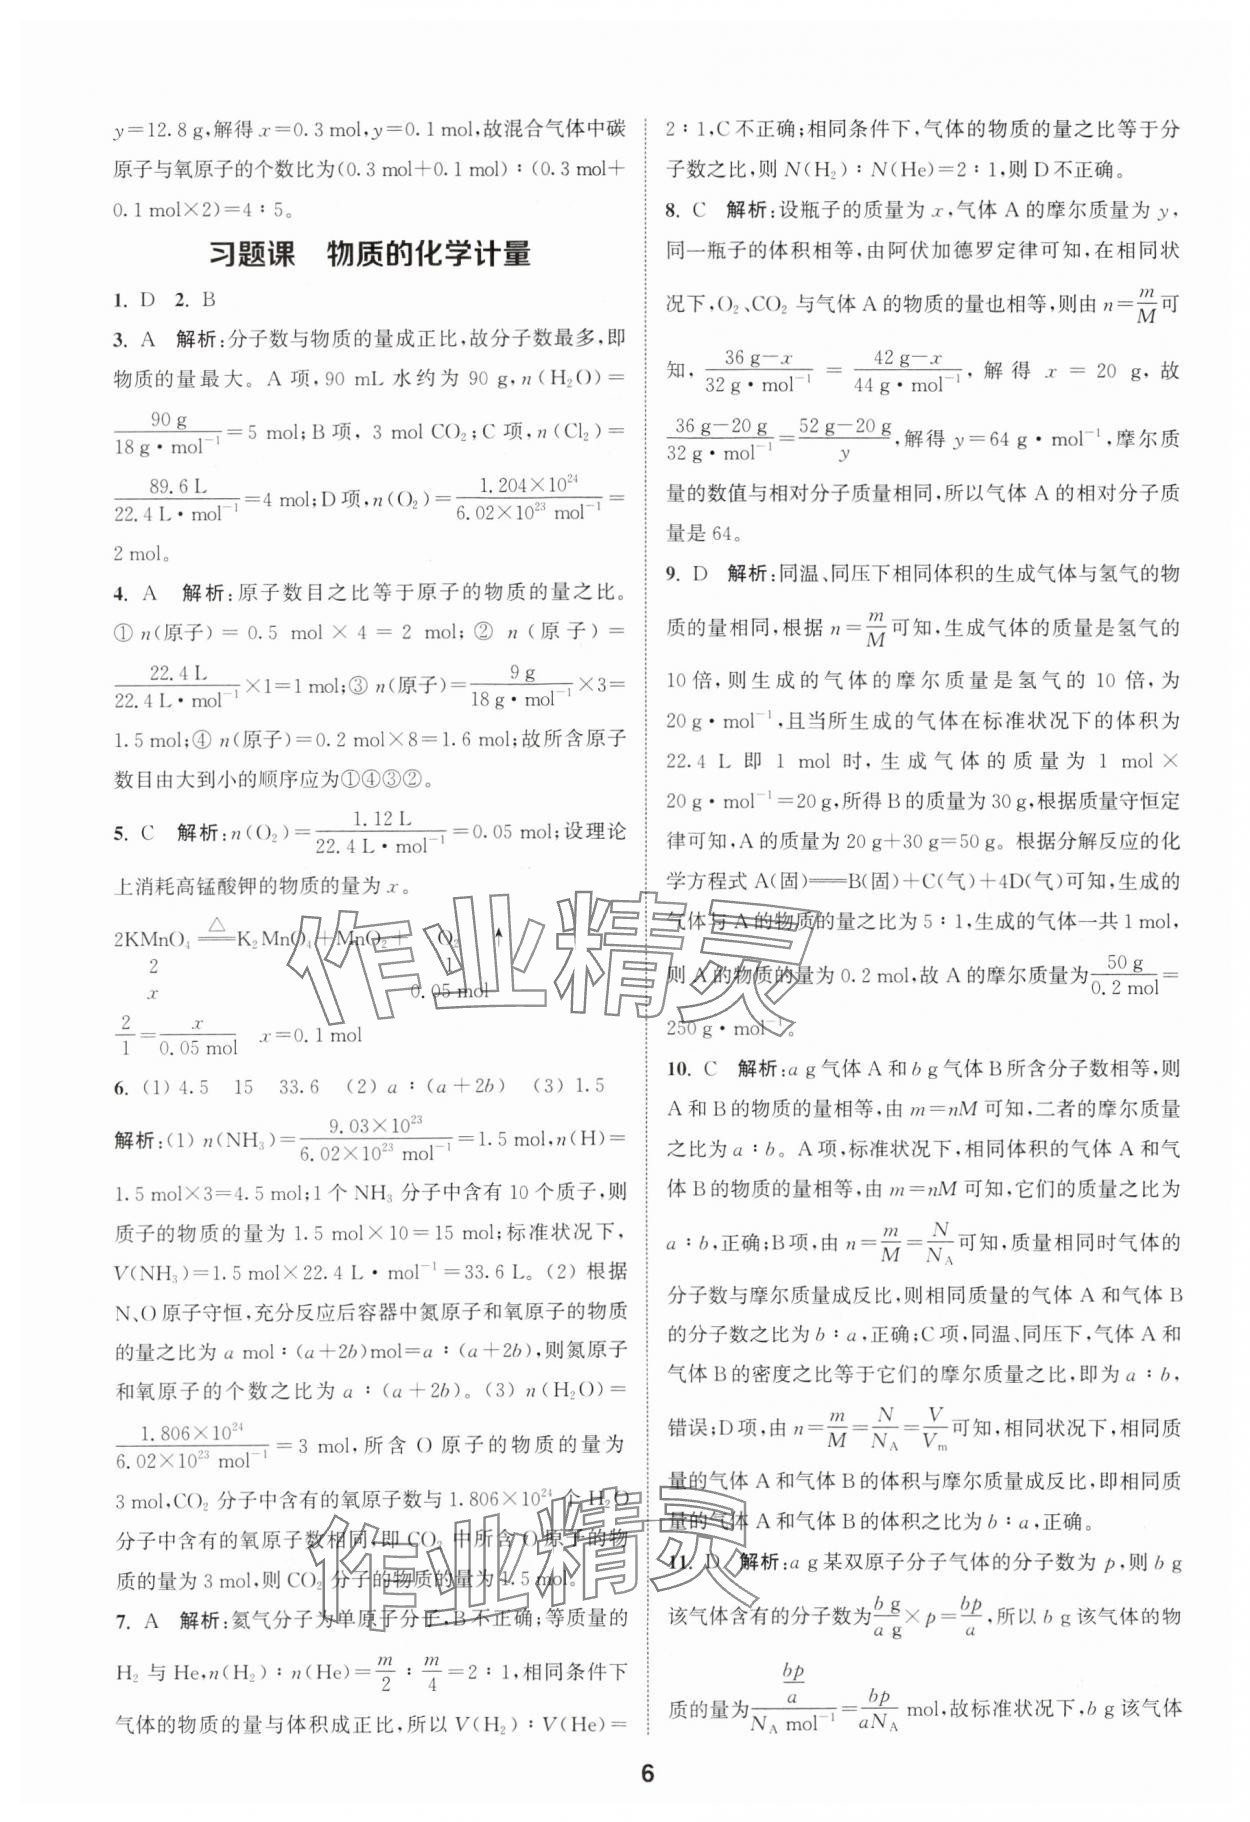 y=12.8 g,解得 x=0.3 mol,y=0.1 mol,故混合气体中碳
原子与氧原子的个数比为(0.3 mol+0.1 mol)∶(0.3 mol+
0.1 mol×2)=4∶5。
习题课 物质的化学计量
1. D 2. B
3. A 解析:分子数与物质的量成正比,故分子数最多,即
物质的量最大。A 项,90 mL 水约为 90 g,n(H₂O)=
90 g/(18 g·mol⁻¹)=5 mol;B 项, 3 mol CO₂;C 项,n(Cl₂)=
89.6 L/(22.4 L·mol⁻¹)=4 mol;D 项,n(O₂)=(1.204×10²⁴)/(6.02×10²³ mol⁻¹)=
2 mol。
4. A 解析:原子数目之比等于原子的物质的量之比。
① n(原子)= 0.5 mol × 4 = 2 mol; ② n(原子)=
22.4 L/(22.4 L·mol⁻¹)×1=1 mol;③ n(原子)=9 g/(18 g·mol⁻¹)×3=
1.5 mol;④ n(原子)=0.2 mol×8=1.6 mol;故所含原子
数目由大到小的顺序应为①④③②。
5. C 解析:n(O₂)=1.12 L/(22.4 L·mol⁻¹)=0.05 mol;设理论
上消耗高锰酸钾的物质的量为 x。
2KMnO₄ =△= K₂MnO₄+MnO₂+ O₂ ↑
2 1
x 0.05 mol
2/1=x/(0.05 mol) x=0.1 mol
6. (1) 4.5 15 33.6 (2) a∶(a+2b) (3) 1.5
解析:(1) n(NH₃)=(9.03×10²³)/(6.02×10²³ mol⁻¹)=1.5 mol,n(H)=
1.5 mol×3=4.5 mol;1 个 NH₃ 分子中含有 10 个质子,则
质子的物质的量为 1.5 mol×10=15 mol;标准状况下,
V(NH₃)=1.5 mol×22.4 L·mol⁻¹=33.6 L。(2) 根据
N、O 原子守恒,充分反应后容器中氮原子和氧原子的物质
的量之比为 a mol∶(a+2b)mol=a∶(a+2b),则氮原子
和氧原子的个数之比为 a∶(a+2b)。(3) n(H₂O)=
(1.806×10²⁴)/(6.02×10²³ mol⁻¹)=3 mol,所含 O 原子的物质的量为
3 mol,CO₂ 分子中含有的氧原子数与 1.806×10²⁴ 个 H₂O
分子中含有的氧原子数相同,即 CO₂ 中所含 O 原子的物
质的量为 3 mol,则 CO₂ 分子的物质的量为 1.5 mol。
7. A 解析:氦气分子为单原子分子,B 不正确;等质量的
H₂ 与 He,n(H₂)∶n(He)=m/2∶m/4=2∶1,相同条件下
气体的物质的量与体积成正比,所以 V(H₂)∶V(He)=
2∶1,C 不正确;相同条件下,气体的物质的量之比等于分
子数之比,则 N(H₂)∶N(He)=2∶1,则 D 不正确。
8. C 解析:设瓶子的质量为 x,气体 A 的摩尔质量为 y,
同一瓶子的体积相等,由阿伏加德罗定律可知,在相同状
况下,O₂、CO₂ 与气体 A 的物质的量也相等,则由 n=m/M可
知,(36 g-x)/(32 g·mol⁻¹) = (42 g-x)/(44 g·mol⁻¹),解得 x = 20 g,故
(36 g-20 g)/(32 g·mol⁻¹)=(52 g-20 g)/y,解得 y=64 g·mol⁻¹,摩尔质
量的数值与相对分子质量相同,所以气体 A 的相对分子质
量是 64。
9. D 解析:同温、同压下相同体积的生成气体与氢气的物
质的量相同,根据 n=m/M可知,生成气体的质量是氢气的
10 倍,则生成的气体的摩尔质量是氢气的 10 倍,为
20 g·mol⁻¹,且当所生成的气体在标准状况下的体积为
22.4 L 即 1 mol 时,生成气体的质量为 1 mol ×
20 g·mol⁻¹=20 g,所得 B 的质量为 30 g,根据质量守恒定
律可知,A 的质量为 20 g+30 g=50 g。根据分解反应的化
学方程式 A(固)══B(固)+C(气)+4D(气)可知,生成的
气体与 A 的物质的量之比为 5∶1,生成的气体一共 1 mol,
则 A 的物质的量为 0.2 mol,故 A 的摩尔质量为50 g/(0.2 mol)=
250 g·mol⁻¹。
10. C 解析:a g 气体 A 和 b g 气体 B 所含分子数相等,则
A 和 B 的物质的量相等,由 m=nM 可知,二者的摩尔质量
之比为 a∶b。A 项,标准状况下,相同体积的气体 A 和气
体 B 的物质的量相等,由 m=nM 可知,它们的质量之比为
a∶b,正确;B 项,由 n=m/M=N/N_A可知,质量相同时气体的
分子数与摩尔质量成反比,则相同质量的气体 A 和气体 B
的分子数之比为 b∶a,正确;C 项,同温、同压下,气体 A 和
气体 B 的密度之比等于它们的摩尔质量之比,即为 a∶b,
错误;D 项,由 n=m/M=N/N_A=V/V_m可知,相同状况下,相同质
量的气体 A 和气体 B 的体积与摩尔质量成反比,即相同质
量的气体 A 和气体 B 的体积之比为 b∶a,正确。
11. D 解析:a g 某双原子分子气体的分子数为 p,则 b g
该气体含有的分子数为(b g)/(a g)×p=bp/a,所以 b g 该气体的物
质的量为(bp/a)/(N_A mol⁻¹)=bp/(aN_A) mol,故标准状况下,b g 该气体
6
作业精灵
作业精灵